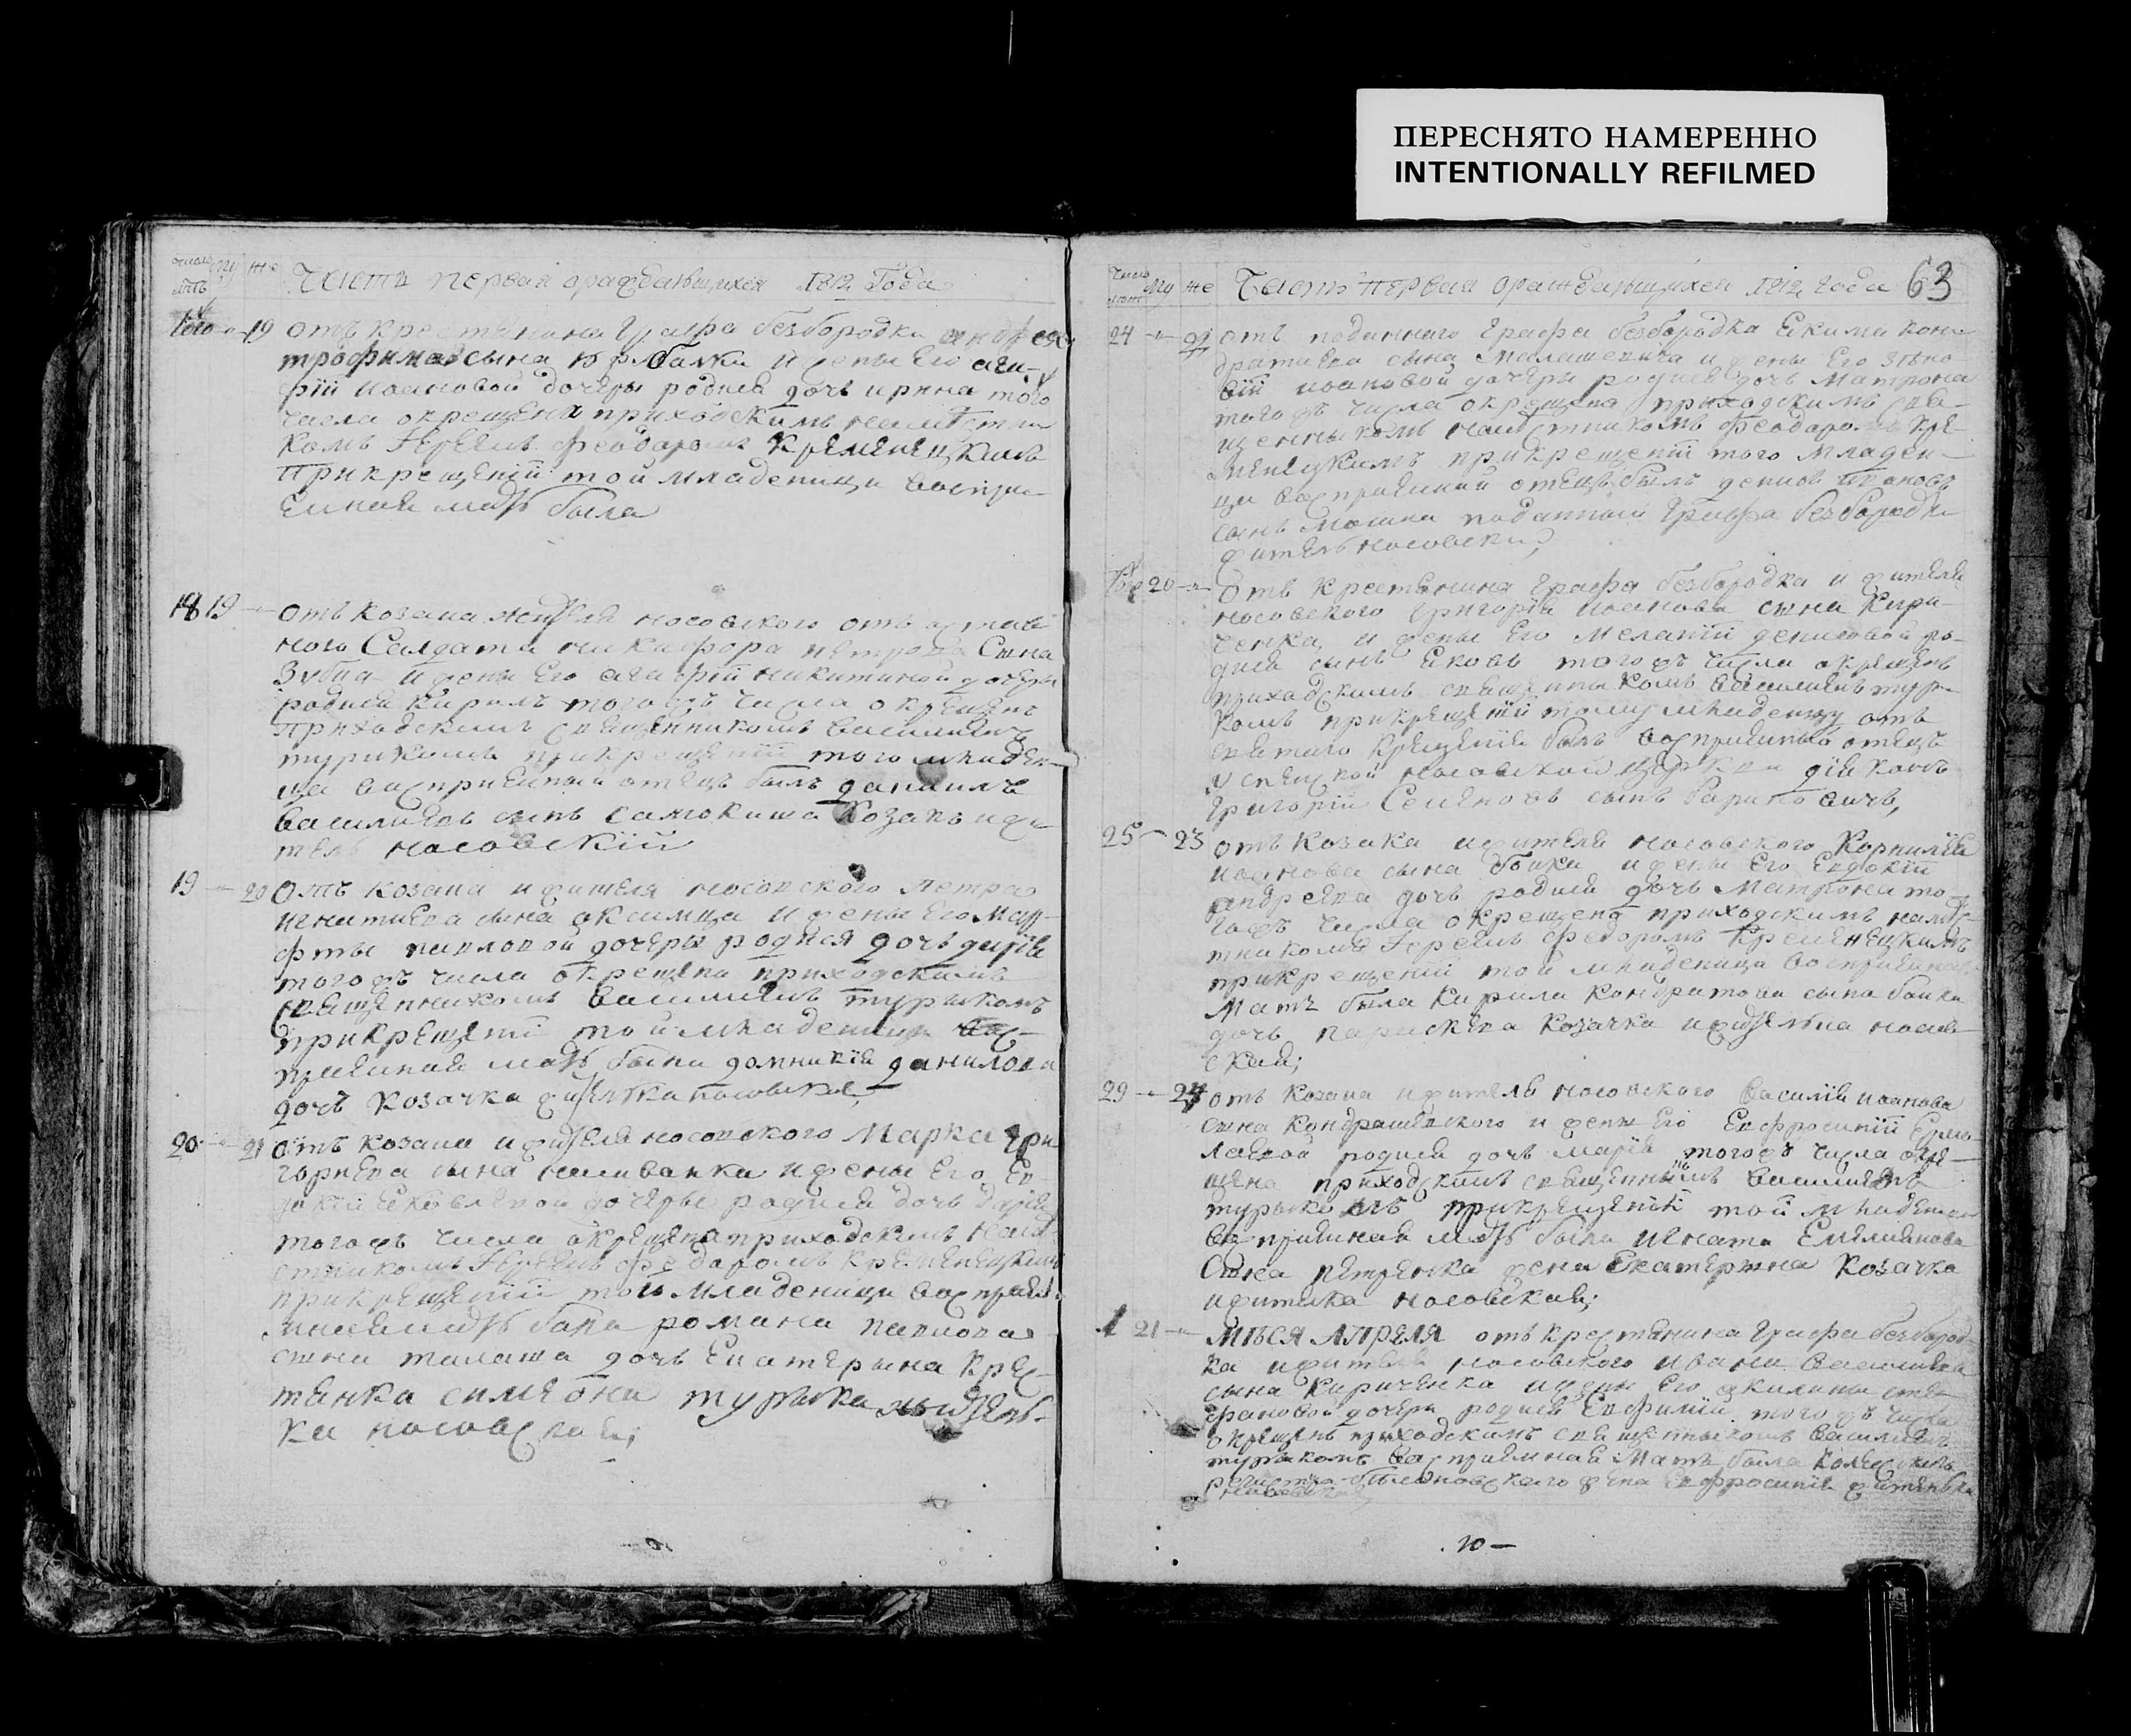 ПЕРЕСНЯТО НАМЕРЕННО
INTENTIONALLY REFILMED
Часть первая ораждавшихся 1812 Года
того 19 отъ крестянина Графа безбородка андрея
трофимова сына и жены Его ага-
фїи иоановой дочеры родися дочь ирина того
числа окрещена приходскимъ намѣстни
комъ Іереемъ феодоромъ Кременецкимъ
Прикрещенїи той младеницы воспри
емная мать была
18 19 отъ козака жителя носовского отъ остав
ного Салдата никифора петрова Сына
Зубца и жены Его агафїи никитиной дочеры
родися Кирилъ тогожъ числа окрещенъ
Приходскимъ священникомъ василиемъ
турикомъ прикрещенїи того младен
ца воспрїемный отецъ былъ данилъ
василиевъ сынъ самокиша Козакъ ижи
тель носовскїй
19 20 Отъ козака ижителя носовского Петра
игнатиева сына аксимца и жены Его мар-
фты павловой дочеры родися дочь дарїя
тогожъ числа окрещена приходскимъ
священникомъ василиемъ турыкомъ
прикрещенїи той младеницы вос-
приемная мать была домникїя данилова
дочъ Козачка жителка носовская
20 21 Отъ козака и жителя носовского Марка гри
гориева сына селиванка и жены Его Ев
докїи Яковлевой дочеры родися дочь дарїя
тогожъ числа окрещена приходскимъ намѣ
стникомъ Іереемъ федоромъ Кременецкимъ
прикрещенїи той младеницы воспрїем
ная мать была романа павлова
сына талаша дочь Екатерына крес
тянка симеона турыка житель-
ка носовская
Часть первая ораждавшихся 1812 года 63
24 22 отъ поданного Графа безбородка Якима кон
дратиева сына Малашевича и жены Его Зѣно
вїи иоановой дочеры родися дочь Матрона
тогожъ числа окрещена приходскимъ свя-
щенныкомъ намѣстникомъ феодоромъ Кре
менецкимъ прикрещенїи того младен-
ца воспрїемный отецъ былъ денисъ ивановъ
сынъ мошка поданный Графа безбородки
житель носовский
20 Отъ Крестянина Графа безбородка и жителя
носовского Григорїя иоанова сына Кири-
ченка, и жены Его меланїи денисовой ро-
дися сынъ Яковъ тогожъ числа окрещенъ
приходскимъ священныкомъ василиемъ тури
комъ прикрещенїи тому младенцу отъ
святого крещенїя былъ воспрїемный отецъ
успенской носовской церкви дїяконъ
Григорїй Семеновъ сынъ
25 23 отъ козака ижителя носовского Корнилїя
иоанова сына бойка и жены Его Евдокїи
андреева дочь родися дочь Матрона то
гожъ числа окрещена приходскимъ намѣс
тникомъ Іереемъ федоромъ Кременецкимъ
прикрещенїи той младеница воспрїемная
Мать была Кирила Кондратова сына бойка
дочь параскева козачка ижителка носов
ская;
29 24 отъ козака ижителя носовского василїя иоанова
сына Кондрашевского и жены Его Евфросинїи Ермо
лаевой родися дочь марїя тогожъ числа окре-
щена приходскимъ священныкомъ василиемъ
турыкомъ прикрещенїи той младеницы
воспрїемная мать была игната Емелиянова
Сына петренка жена Екатерына Козачка
ижителка носовская;
1 21 Мѣсяца Апреля отъ крестянина Графа безбород
ка ижителя носовского ивана василиева
сына Кириченка ижены Его акилины сте
фановой дочеры родися Евфимїй тогожъ числа
окрещенъ приходскимъ священныкомъ василиемъ
турыкомъ воспрїемная Мать была
жена евфросинїя жителька
10